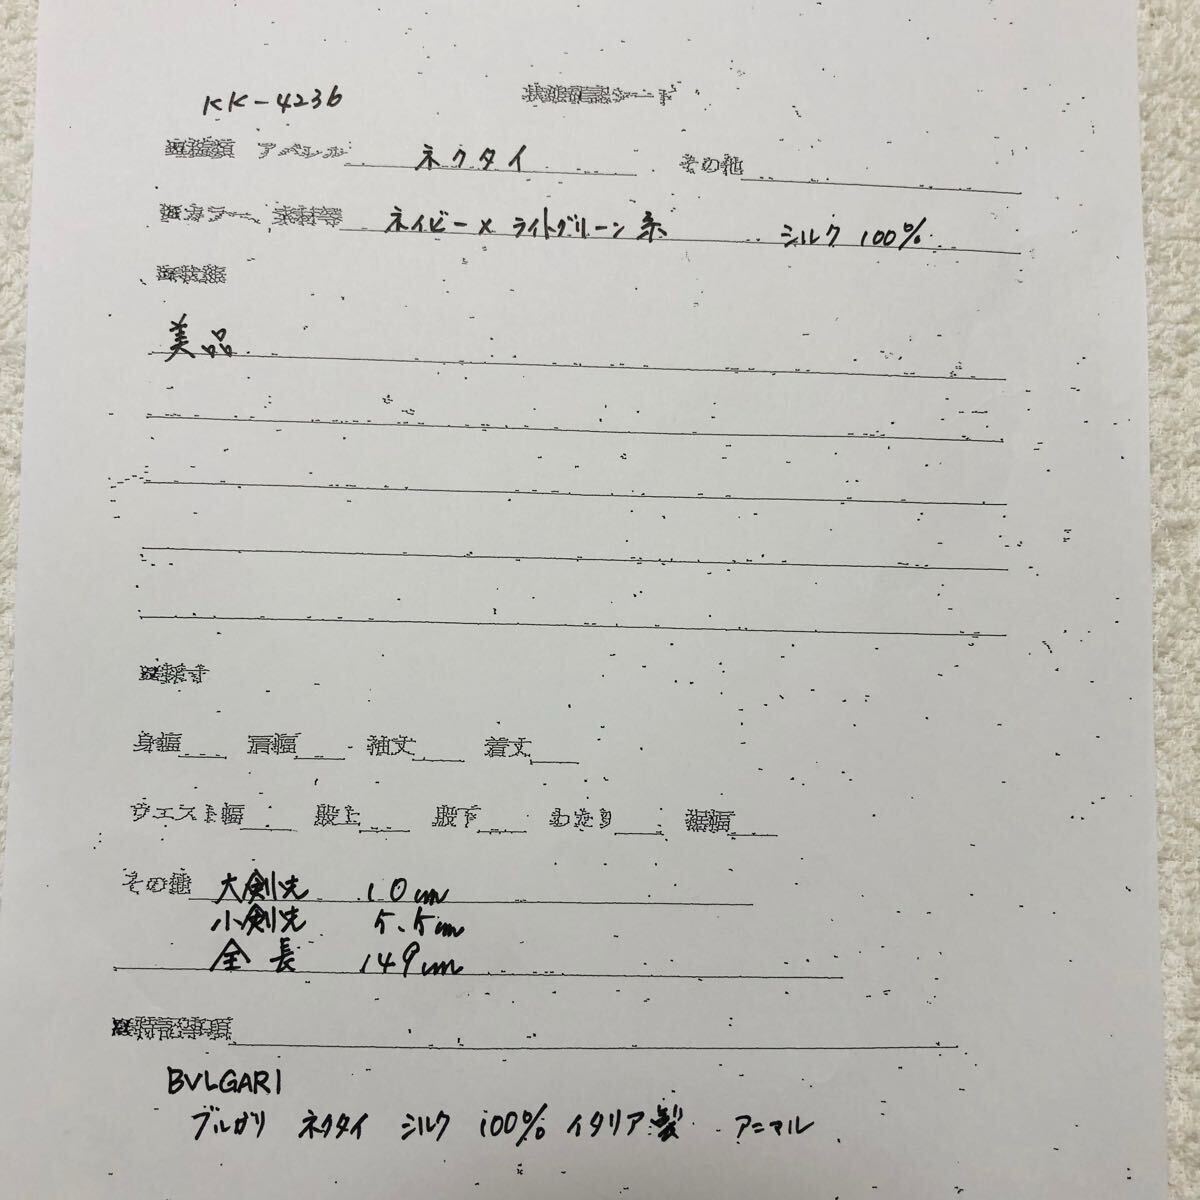 KK-4236 状態確認シート
アパレル ネクタイ その他
カラー、素材等 ネイビー×ライトグリーン系 シルク 100%
状態
美品
採寸
身幅 肩幅 袖丈 着丈
ウエスト幅 股上 股下 わたり 裾幅
その他 大剣先 10cm
小剣先 5.5cm
全長 149cm
特記事項
BVLGARI
ブルガリ ネクタイ シルク 100% イタリア製 アニマル